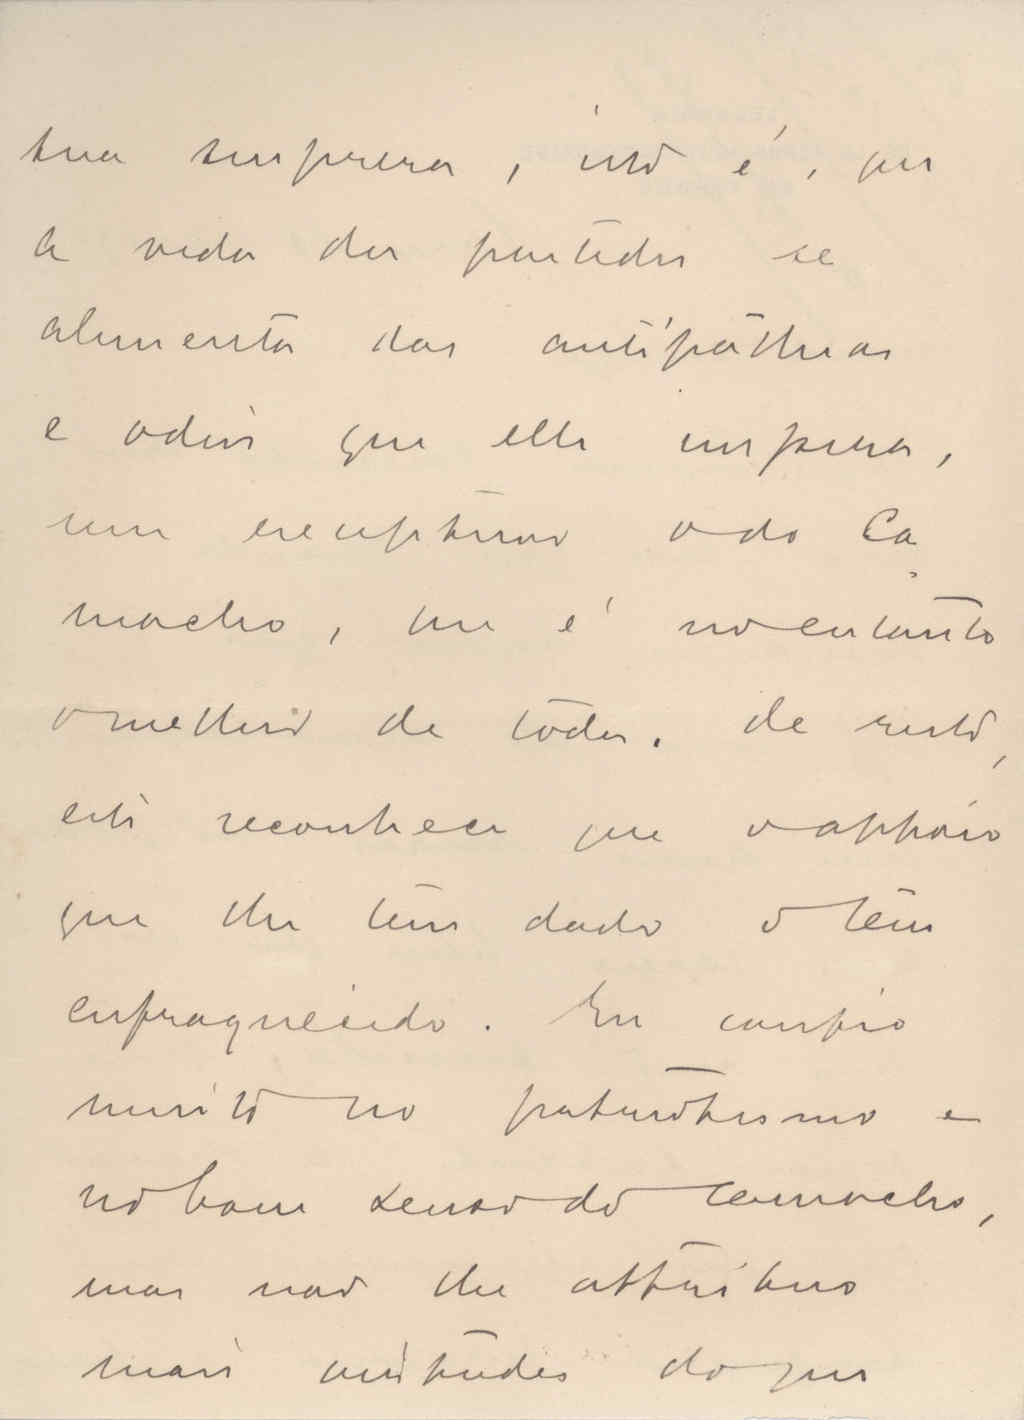 tua surpresa, isto é, que
a vida dos partidos se
alimenta das antipathias
e odios que elle inspira,
sem exceptuar o do Ca
macho, que é no entanto
o melhor de todos. De resto,
este reconhece que o appoio
que lhe tem dado o tem
enfraquecido. Eu confio
muito no patriotismo e
no bom senso do Camacho,
mas não lhe attribuo
mais virtudes do que